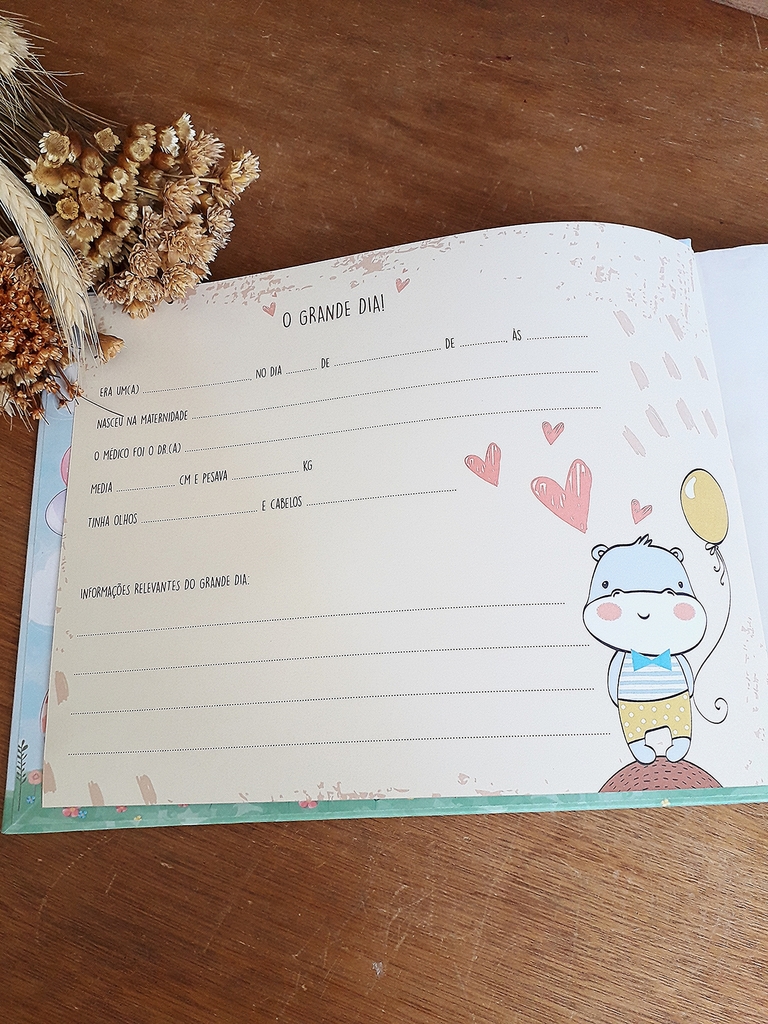 O GRANDE DIA!
ERA UM(A) ........................ NO DIA ........ DE ........................ DE ............, ÀS ................
NASCEU NA MATERNIDADE ........................
O MÉDICO FOI O DR.(A) ........................
MEDIA ................ CM E PESAVA ................ KG
TINHA OLHOS ........................ E CABELOS ........................
INFORMAÇÕES RELEVANTES DO GRANDE DIA: